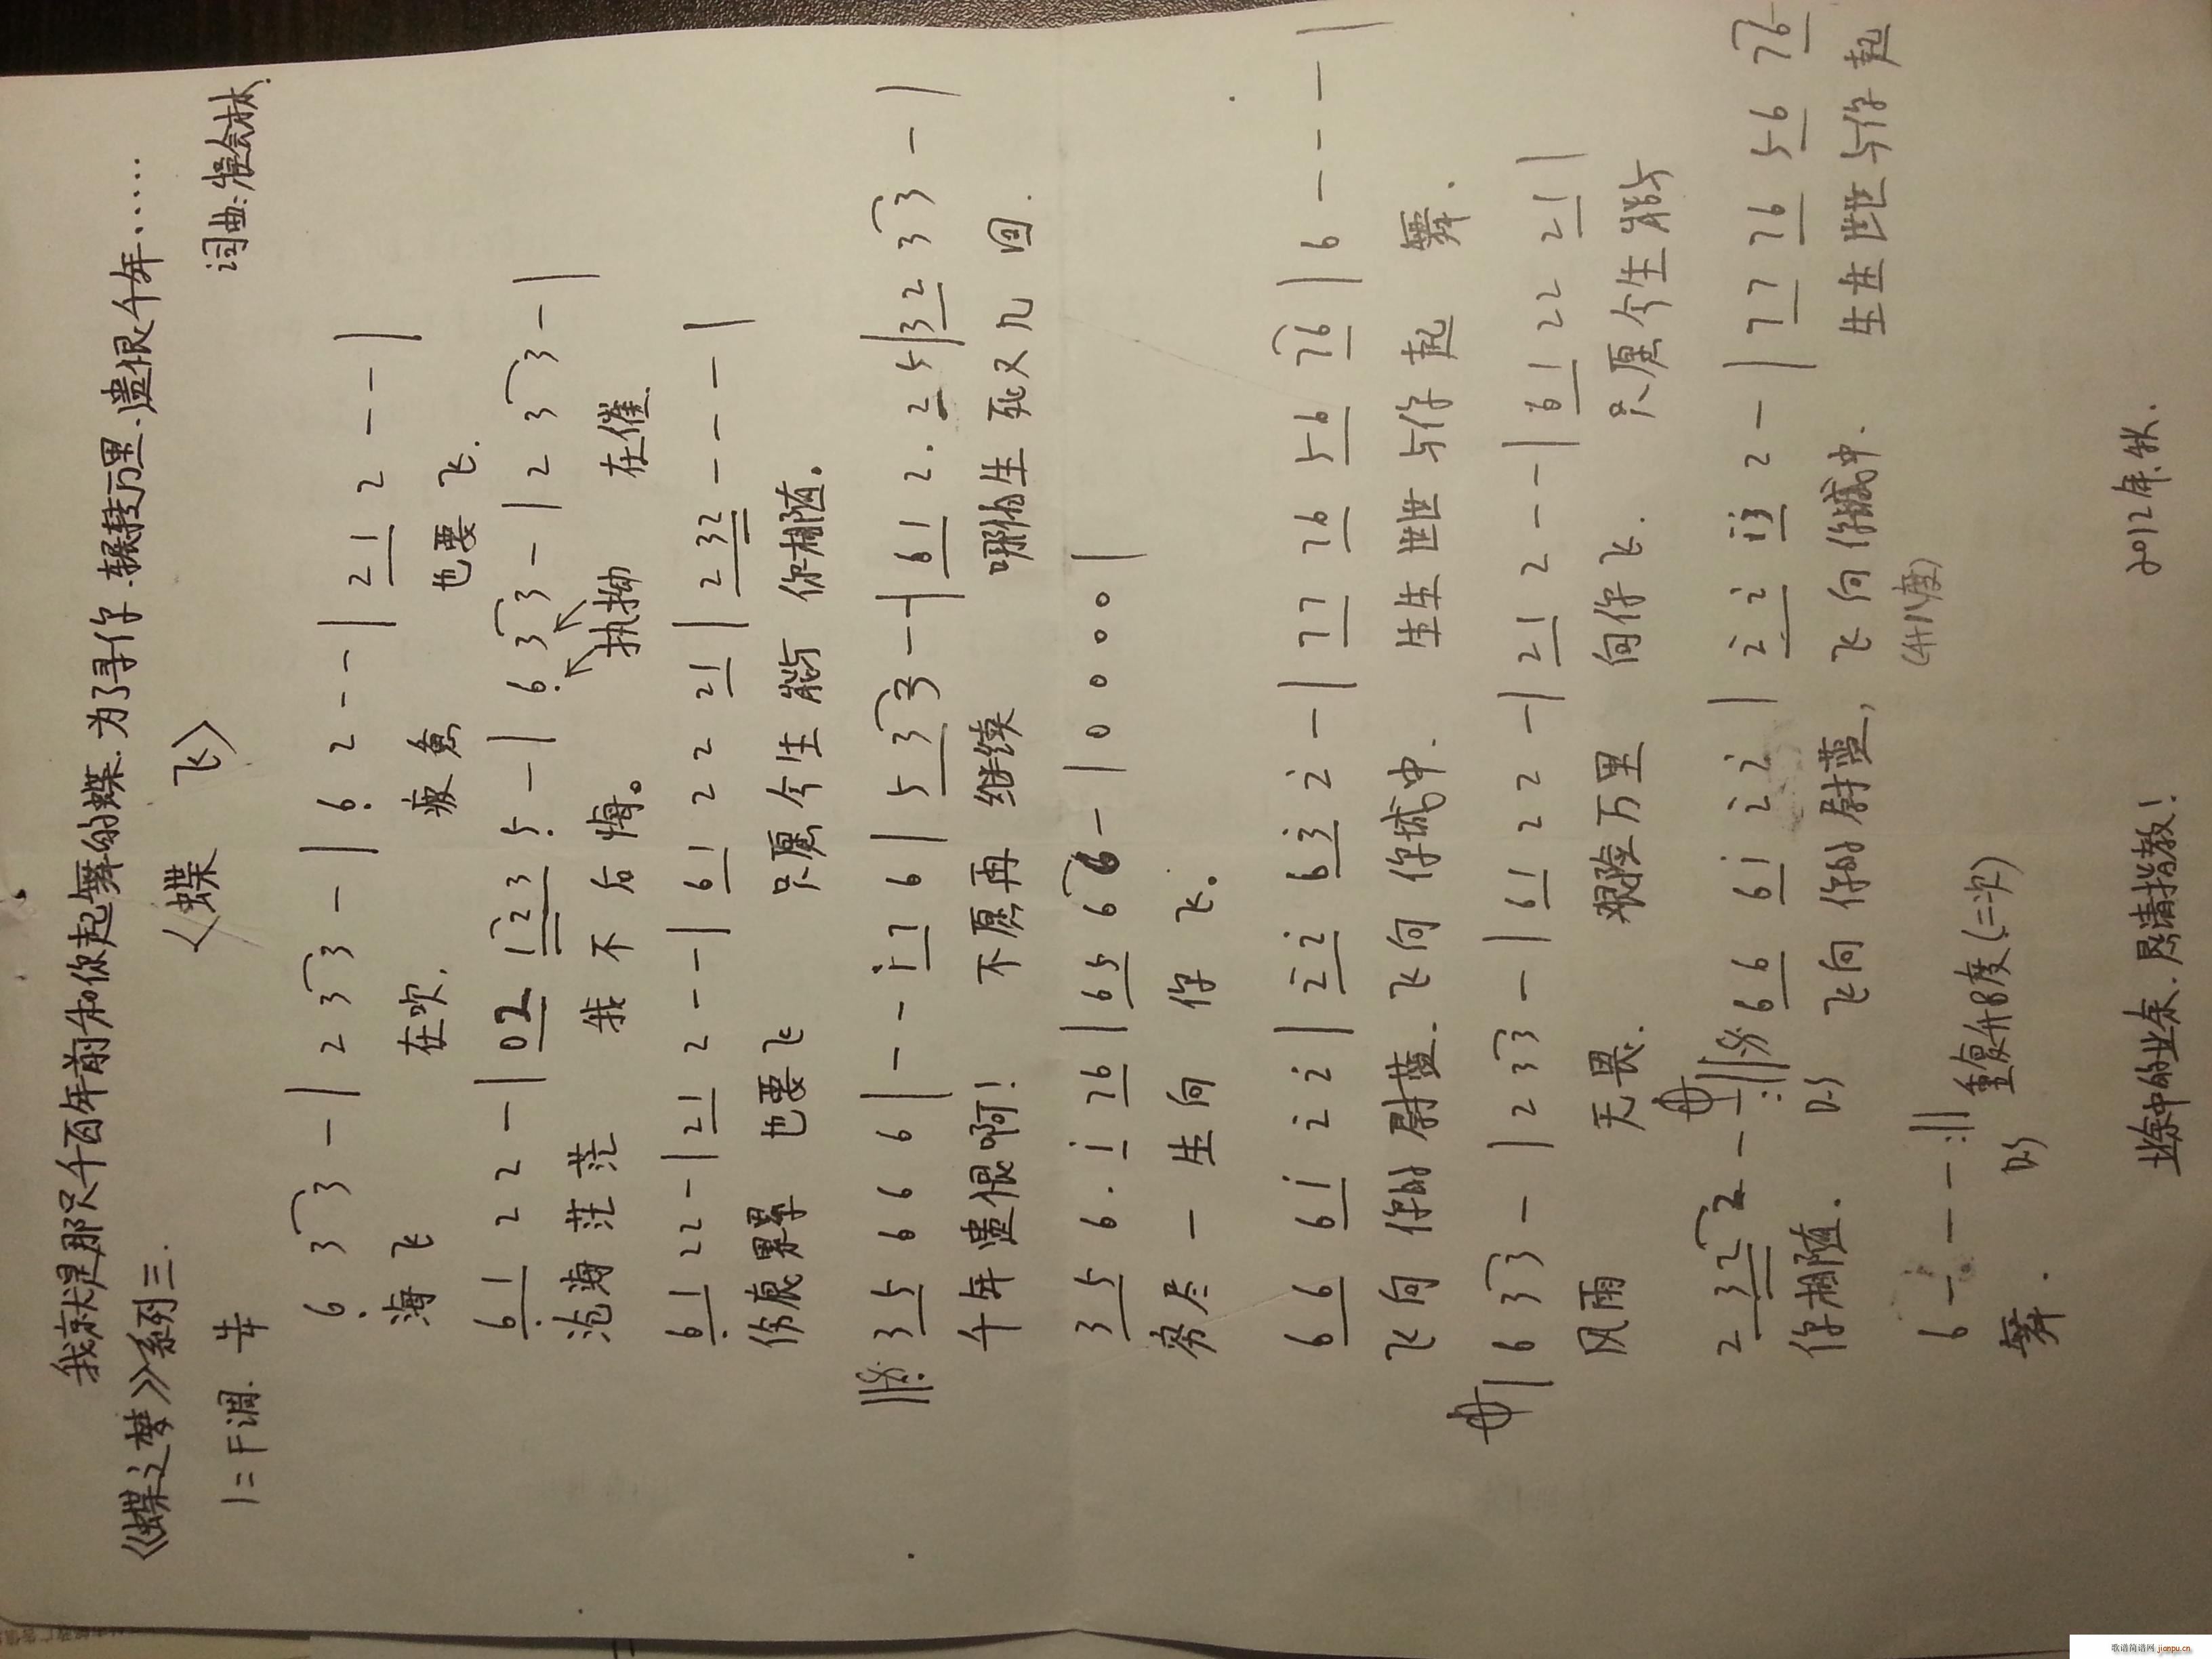 我就是那只千百年前和你起舞的蝶.为了寻你.辗转万里.遗恨千年......
《蝶之梦》系列三.
〈蝶 飞〉
1=F调. 4/4
词曲:
6̣ 3 3 - | 2 3 3 - | 6̣ 2 - - | 2 1 2 - - |
海 飞 在吹. 疲惫 也要 飞.
6̣ 1 2 2 - | 0 2 1 2 3 5̣ - | 6̣ 3 3 - | 2 3 3 - |
沧海 茫 茫 我 不 后 悔。 执拗 在催
6̣ 1 2 2 - | 2 1 2 - - | 6 1 2 2 2 1 | 2 3 2 - - - |
伤痕累累 也要飞 只愿 今 生 能与 你相随。
3 5 6 6 6 | - - i 7 6 | 5 3 3 - - | 6 1 2. 2 5 | 3 2 3 3 - |
千年 遗恨啊! 不愿再 继续 哪怕生 死又几 回.
3 5 6. i 7 6 | 6 5 6 6 - | 0 0 0 0 |
穷尽 一 生向 你 飞。
6 6 6 i 2̇ 2̇ | 2̇ 2̇ 6 3̇ 2̇ - | 7 7 7 6 5 6 7 6 | 6 - - - |
飞向 你的尉蓝. 飞向 你城中. 生生 世世 与你 起 舞.
6 3 3 - | 2 3 3 - | 6 1 2 2 - | 2 1 2 - - | 6 1 2 2 2 1 |
风雨 无畏. 艰险万里 向你飞. 只愿今生能与
2 3 2 2 - - :|| 6 6 6 i 2̇ 2̇ | 2̇ 2̇ i 3̇ 2 - | 7 7 7 6 5 6 7 6
你相随. D.S 飞向 你的尉蓝, 飞向你城中. 生生世世与你 起
(升八度)
6 - - - :|| 重复升8度(二次)
舞. D.S
业余中的业余.恳请指教! 2012年.秋.
歌谱简谱网 jianpu.cn